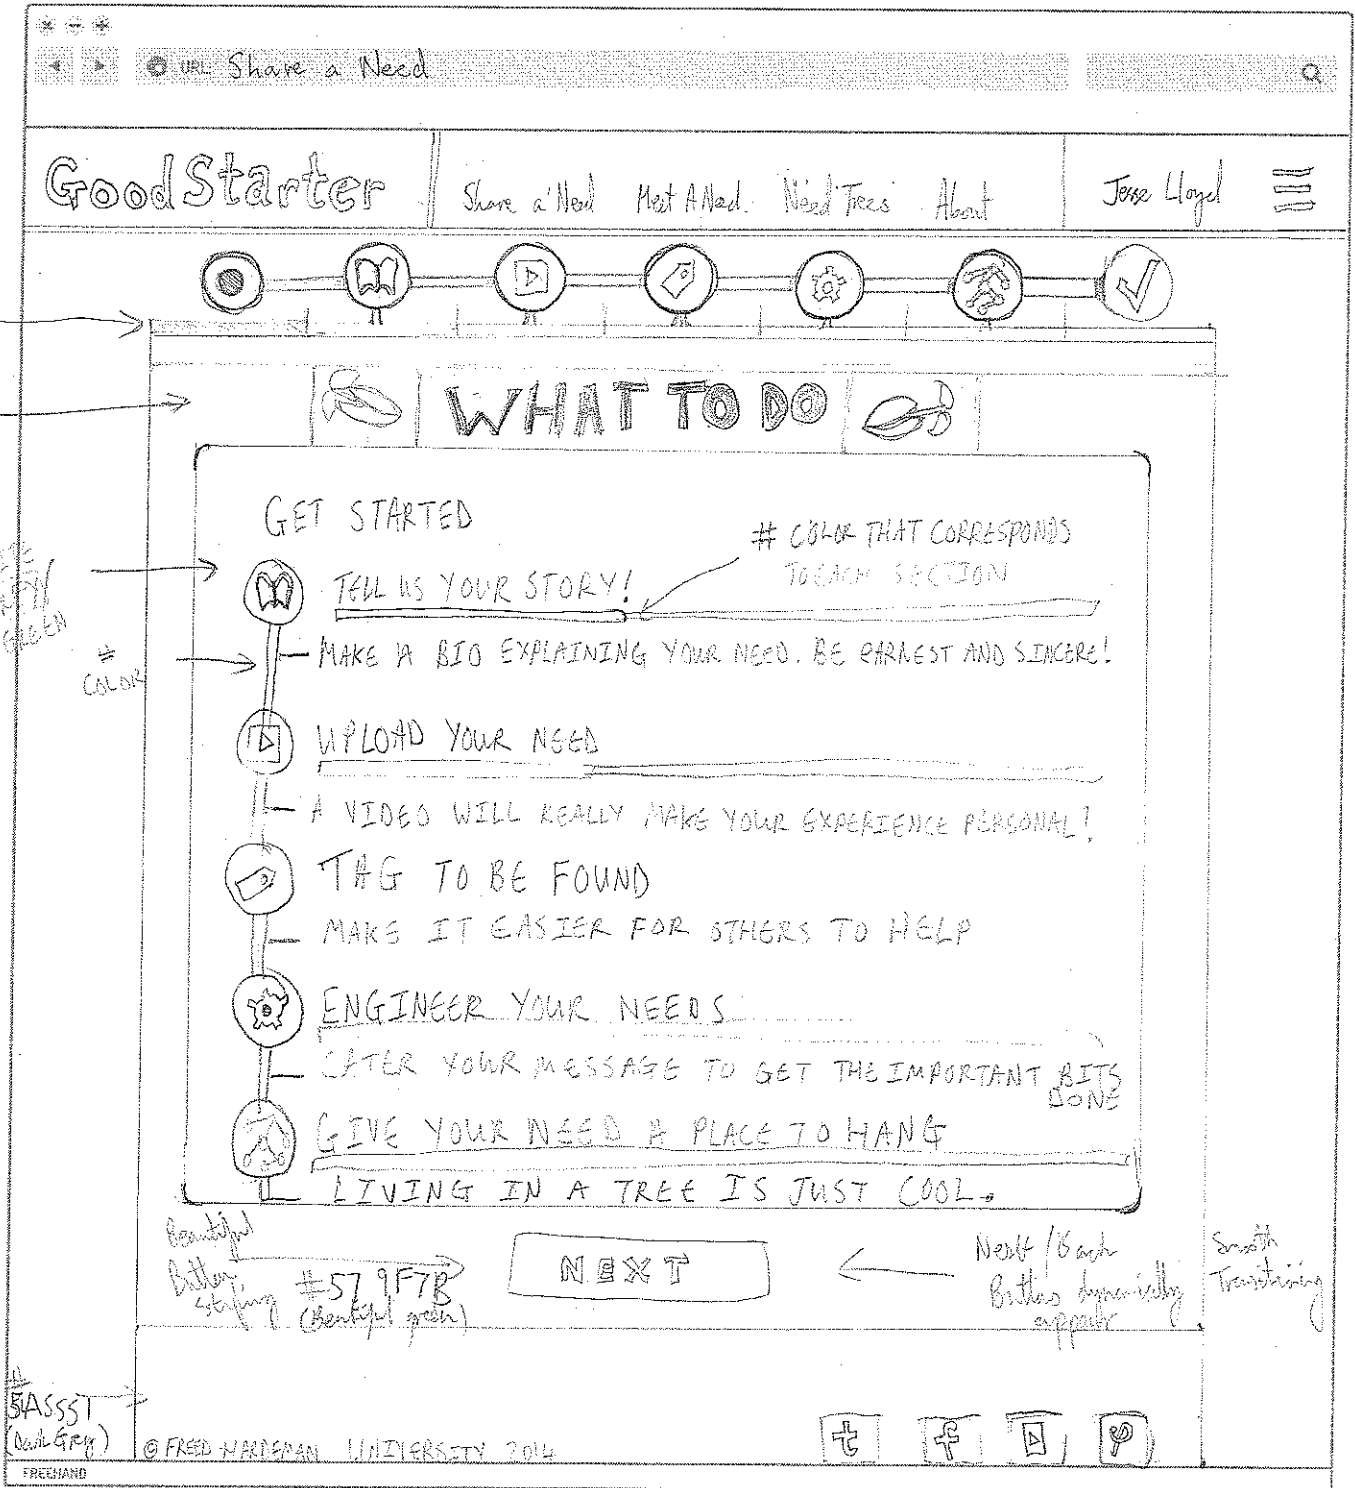 URL Share a Need
GoodStarter
Share a Need Meet A Need. Need Trees About
Jesse Lloyd
WHAT TO DO
GET STARTED
# COLOR THAT CORRESPONDS
TO EACH SECTION
TELL US YOUR STORY!
GREEN
MAKE A BIO EXPLAINING YOUR NEED. BE EARNEST AND SINCERE!
#
COLOR
UPLOAD YOUR NEED
A VIDEO WILL REALLY MAKE YOUR EXPERIENCE PERSONAL!
TAG TO BE FOUND
MAKE IT EASIER FOR OTHERS TO HELP
ENGINEER YOUR NEEDS
CATER YOUR MESSAGE TO GET THE IMPORTANT BITS
DONE
GIVE YOUR NEED A PLACE TO HANG
LIVING IN A TREE IS JUST COOL.
Beautiful
Button
styling
#579F7B
(Beautiful green)
NEXT
Next/Back
Buttons dynamically
appear
Smooth
Transitioning
#
(Dark Grey)
© FREED-HARDEMAN UNIVERSITY 2014
t f
FREEHAND